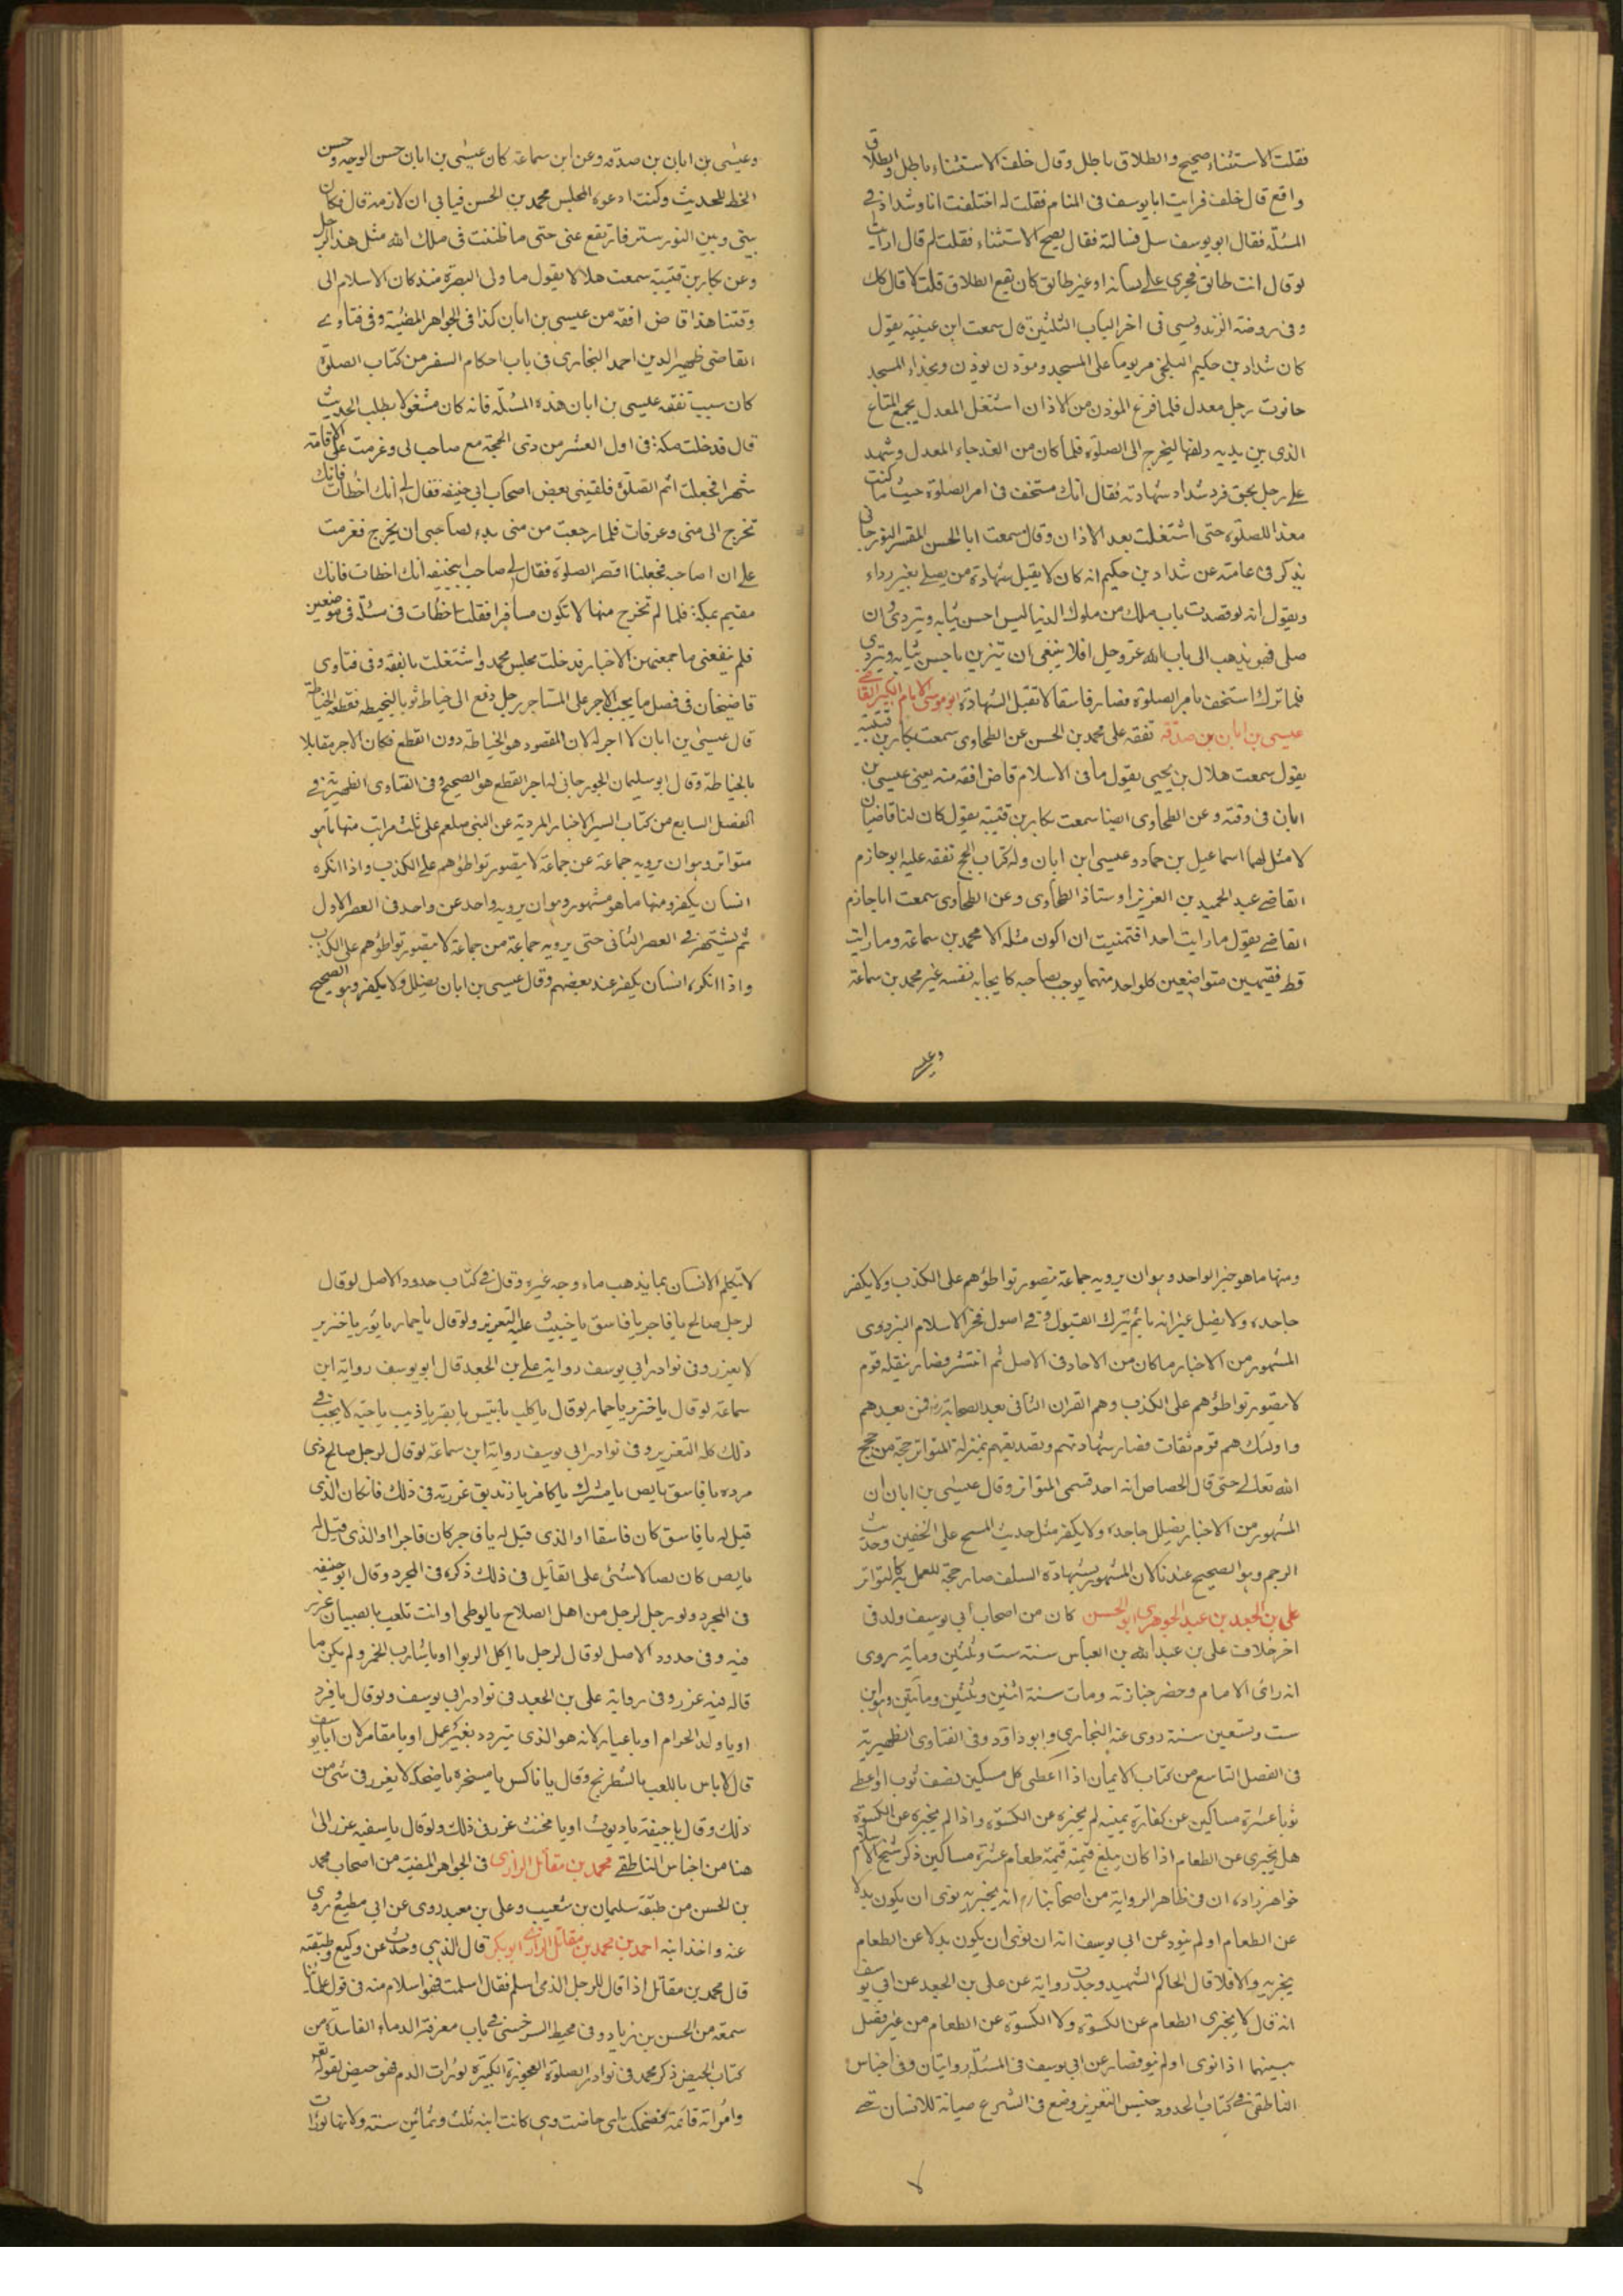 فقلت الاستثناء صحيح والطلاق باطل وقال خلف الاستثناء باطل والطلاق
واقع قال خلف فرايت ابا يوسف فى المنام فقلت له اختلفت انا وشداد فى
المسئلة فقال ابو يوسف سل فسالته فقال يصح الاستثناء فقلت لم قال ارايت
لو قال انت طالق فجرى على لسانه او غير طالق كان يقع الطلاق قلت لا قال كك
وفى روضة الزندويسى فى اخر الباب الثلثين قال سمعت ابن عيينة يقول
كان شداد بن حكيم البلخى مر يوما على المسجد وموذن يوذن وبحذاء المسجد
حانوت رجل معدل فلما فرغ الموذن من الاذان اشتغل المعدل بجمع المتاع
الذى بين يديه ولفها ليخرج الى الصلوة فلما كان من الغد جاء المعدل وشهد
على رجل بحق فرد شداد شهادته فقال انك مستخف فى امر الصلوة حيث ما كنت
معدا للصلوة حتى اشتغلت بعد الاذان وقال سمعت ابا الحسن المفسر
يذكر فى عامته عن شداد بن حكيم انه كان لا يقبل شهادة من يصلى بغير رداء
ويقول انه لو قصدت باب ملك من ملوك الدنيا لبس احسن ثيابه وتردى وان
صلى فهو يذهب الى باب الله عز وجل افلا ينبغى ان يتزين باحسن ثيابه ويتردى
فلما ترك استخف بامر الصلوة فصار فاسقا لا تقبل الشهادة ابو موسى الامام الكبير القاضى
عيسى بن ابان بن صدقة تفقه على محمد بن الحسن عن الطحاوى سمعت بكار بن قتيبة
يقول سمعت هلال بن يحيى يقول ما فى الاسلام قاض افقه منه يعنى عيسى بن
ابان فى وقته وعن الطحاوى ايضا سمعت بكار بن قتيبة يقول كان لنا قاضيان
لا مثل لهما اسماعيل بن حماد وعيسى ابن ابان وله كتاب الحج تفقه عليه ابو حازم
القاضى عبد الحميد بن العزيز اوستاذ الطحاوى وعن الطحاوى سمعت ابا حازم
القاضى يقول ما رايت احدا فتمنيت ان اكون مثله الا محمد بن سماعة وما رايت
قط فقيهين متواضعين كل واحد منهما يوجب لصاحبه كايجابه نفسه غير محمد بن سماعة
وعيسى
وعيسى بن ابان بن صدقه وعن ابن سماعة كان عيسى بن ابان حسن الوجه وحسن
الخط للحديث وكنت ادعوه المجلس محمد بن الحسن فيابى ان لازمه قال فكان
بينى وبين النور ستر فارتفع عنى حتى ما ظننت فى ملك الله مثل هذا الرجل
وعن بكار بن قتيبة سمعت هلالا يقول ما ولى البصرة منذ كان الاسلام الى
وقتنا هذا قاض افقه من عيسى بن ابان كذا فى الجواهر المضيئة وفى فتاوى
القاضى ظهير الدين احمد البخارى فى باب احكام السفر من كتاب الصلوة
كان سبب تفقه عيسى بن ابان هذه المسئلة فانه كان مشغولا بطلب الحديث
قال قد خلت مكة فى اول العشر من ذى الحجة مع صاحب لى وعزمت على الاقامة
شهرا فجعلت اتم الصلوة فلقينى بعض اصحاب ابى حنيفه فقال لى انك اخطات فانك
تخرج الى منى وعرفات فلما رجعت من منى بدء لصاحبى ان يخرج فعزمت
على ان اصاحبه فجعلنا اقصر الصلوة فقال لى صاحب ابيحنيفه انك اخطات فانك
مقيم بمكة فلما لم تخرج منها لا تكون مسافرا فقلت اخطات فى مسئلة فى موضعين
فلم ينفعنى ما جمعتهن الاخبار فدخلت مجلس محمد واشتغلت بالفقه وفى فتاوى
قاضيخان فى فصل ما يجب الاجر على المستاجر رجل دفع الى خياط ثوبا ليخيطه فقطعه الخياطة
قال عيسى بن ابان لا اجر له لان المقصود هو الخياطة دون القطع فكان الاجر مقابلا
بالخياطة وقال ابو سليمان الجورجانى له اجر القطع هو الصحيح وفى الفتاوى الظهيرية فى
الفصل السابع من كتاب السير الاخبار المروية عن النبى صلعم على ثلث مراتب منها ما هو
متواتر وهو ان يرويه جماعة عن جماعة لا يتصور تواطؤهم على الكذب واذا انكره
انسان يكفر ومنها ما هو مشهور وهو ان يرويه واحد عن واحد فى العصر الاول
ثم يشتهر فى العصر الثانى حتى يرويه جماعة من جماعة لا يتصور تواطؤهم على الكذب
واذا انكره انسان يكفر عند بعضهم وقال عيسى بن ابان يضلل ولا يكفر وهو الصحيح
ومنها ما هو خبر الواحد وهو ان يرويه جماعة يتصور تواطؤهم على الكذب ولا يكفر
جاحده ولا يضل غير انه ياثم بترك القبول وفى اصول فخر الاسلام البزدوى
المشهور من الاخبار ما كان من الاحاد فى الاصل ثم انتشر فصار ينقله قوم
لا يتصور تواطؤهم على الكذب وهم القران الثانى بعد الصحابة رض فمن بعدهم
واولئك هم قوم ثقات فصار شهادتهم وتصديقهم بمنزلة المتواتر حجة من حجج
الله تعالى حتى قال الجصاص انه احد قسمى المتواتر وقال عيسى بن ابان ان
المشهور من الاخبار يضلل جاحده ولا يكفر مثل حديث المسح على الخفين وحديث
الرجم وهو الصحيح عندنا لان المشهور بشهادة السلف صار حجة للعمل به كالمتواتر
على بن الجعد بن عبد الجوهرى ابو الحسن كان من اصحاب ابى يوسف ولد فى
اخر خلافت على بن عبد الله بن العباس سنة ست وثلثين ومائة روى
انه رائ الامام وحضر جنازته ومات سنة اثنين وثلثين ومائتين وهو ابن
ست وتسعين سنة روى عنه البخارى وابو داود وفى الفتاوى الظهيرية
فى الفصل التاسع من كتاب الايمان اذا اعطى كل مسكين نصف ثوب او اعطى
ثوبا عشرة مساكين عن كفارة يمينه لم يجزه عن الكسوة واذا لم يجزه عن الكسوة
هل يجزى عن الطعام اذا كان يبلغ قيمته قيمة طعام عشرة مساكين ذكر شيخ الاسلام
خواهر زاده ان فى ظاهر الرواية من اصحابنا رح انه يجزيه نوى ان يكون بدلا
عن الطعام او لم ينو وعن ابى يوسف انه ان نوى ان يكون بدلا عن الطعام
يجزيه والا فلا قال الحاكم الشهيد وجدت رواية عن على بن الجعد عن ابى يوسف
انه قال لا يجزى الطعام عن الكسوة ولا الكسوة عن الطعام من غير فصل
بينهما اذا نوى او لم ينو فصار عن ابى يوسف فى المسئلة روايتان وفى اجناس
الناطقى فى كتاب الحدود جنس التعزير وضع فى الشرع صيانة للانسان حتى
لا
لا يتكلم الانسان بما يذهب ماء وجه غيره وقال فى كتاب حدود الاصل لو قال
لرجل صالح يا فاجر يا فاسق يا خبيث عليه التعزير ولو قال يا حمار يا ثور يا خنزير
لا يعزر وفى نوادر ابى يوسف رواية على بن الجعد قال ابو يوسف رواية ابن
سماعة لو قال يا خنزير يا حمار لو قال يا كلب يا تيس يا بقر يا ذيب يا حية لا يجب فى
ذلك كله التعزير وفى نوادر ابى يوسف رواية ابن سماعة لو قال لرجل صالح ذى
مروه يا فاسق يا لص يا مشرك يا كافر يا زنديق عزرته فى ذلك فان كان الذى
قيل له يا فاسق كان فاسقا او الذى قيل له يا فاجر كان فاجرا او الذى قيل له
يا لص كان لصا لا شئ على القايل فى ذلك ذكره فى المجرد وقال ابو حنيفه
فى المجرد ولو رجل لرجل من اهل الصلاح يا لوطى او انت تلعب بالصبيان عزر
فيه وفى حدود الاصل لو قال لرجل يا اكل الربوا او يا شارب الخمر ولم يكن ما
قاله فيه عزر وفى رواية على بن الجعد فى نوادر ابى يوسف ولو قال يا قرد
او يا ولد الحرام او يا عيار لانه هو الذى يتردد بغير عمل او يا مقامر لان ابا يوسف
قال لا باس باللعب بالشطرنج وقال يا ناكس يا مسخره يا ضحكه لا يعزر فى شئ من
ذلك وقال يا جيفة يا ديوث او يا مخنث عزر فى ذلك ولو قال يا سفيه عزر الى
هنا من اجناس الناطقى محمد بن مقاتل الرازى فى الجواهر المضيئة من اصحاب محمد
بن الحسن من طبقة سليمان بن شعيب وعلى بن معبد روى عن ابى مطيع وروى
عنه واخذ ابنه احمد بن محمد بن مقاتل الرازى ابو بكر قال الذهبى وحدث عن وكيع وطبقته
قال محمد بن مقاتل اذا قال للرجل الذمى اسلم فقال اسلمت فهو اسلام منه فى قول علمائنا
سمعة من الحسن بن زياد وفى محيط السرخسى فى باب معرفة الدماء الفاسدة من
كتاب الحيض ذكر محمد فى نوادر الصلوة العجوزة الكبيرة لو رات الدم فهو حيض لقوله تع
وامراته قائمة فضحكت اى حاضت وهى كانت ابنة ثلث وثمانين سنة ولانها لو رات